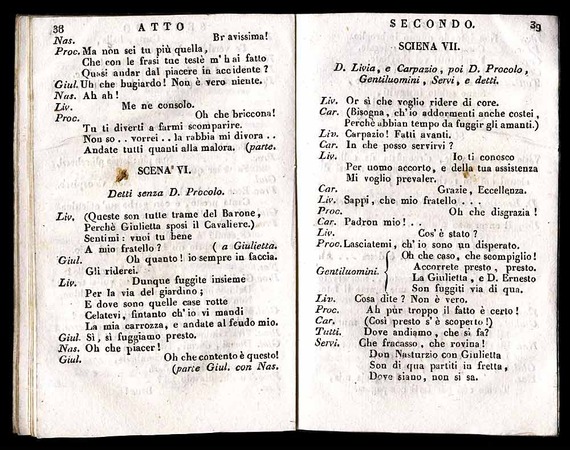 38 ATTO
Nas. Bravissima!
Proc. Ma non sei tu più quella,
Che con le frasi tue testè m'hai fatto
Quasi andar dal piacere in accidente?
Giul. Uh che bugiardo! Non è vero niente.
Nas. Ah ah!
Liv. Me ne consolo.
Proc. Oh che briccona!
Tu ti diverti a farmi scomparire.
Non so .. vorrei .. la rabbia mi divora ..
Andate tutti quanti alla malora. (parte.
SCENA VI.
Detti senza D. Procolo.
Liv. (Queste son tutte trame del Barone,
Perchè Giulietta sposi il Cavaliere.)
Sentimi: vuoi tu bene
A mio fratello? (a Giulietta.
Giul. Oh quanto! io sempre in faccia.
Gli riderei.
Liv. Dunque fuggite insieme
Per la via del giardino;
E dove sono quelle case rotte
Celatevi, fintanto ch'io vi mandi
La mia carrozza, e andate al feudo mio.
Giul. Sì, sì fuggiamo presto.
Nas. Oh che piacer!
Giul. Oh che contento è questo!
(parte Giul. con Nas.
SECONDO. 39
SCIENA VII.
D. Livia, e Carpazio, poi D. Procolo,
Gentiluomini, Servi, e detti.
Liv. Or sì che voglio ridere di core.
Car. (Bisogna, ch'io addormenti anche costei,
Perchè abbian tempo da fuggir gli amanti.)
Liv. Carpazio! Fatti avanti.
Car. In che posso servirvi?
Liv. Io ti conosco
Per uomo accorto, e della tua assistenza
Mi voglio prevaler.
Car. Grazie, Eccellenza.
Liv. Sappi, che mio fratello . . .
Proc. Oh che disgrazia!
Car. Padron mio! . .
Liv. Cos' è stato?
Proc. Lasciatemi, ch'io sono un disperato.
Gentiluomini. { Oh che caso, che scompiglio!
Accorrete presto, presto.
La Giulietta, e D. Ernesto
Son fuggiti via di qua.
Liv. Cosa dite? Non è vero.
Proc. Ah pur troppo il fatto è certo!
Car. (Così presto s'è scoperto!)
Tutti. Dove andiamo, che si fa?
Servi. Che fracasso, che rovina!
Don Nasturzio con Giulietta
Son di qua partiti in fretta,
Dove siano, non si sa.